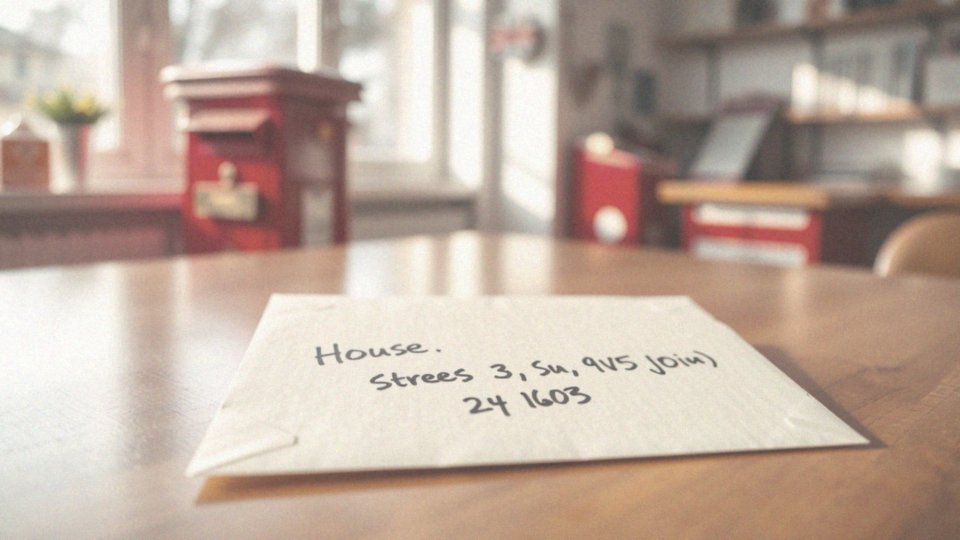 House.
Strees 3, Su, 9V5 Join)
24 1603